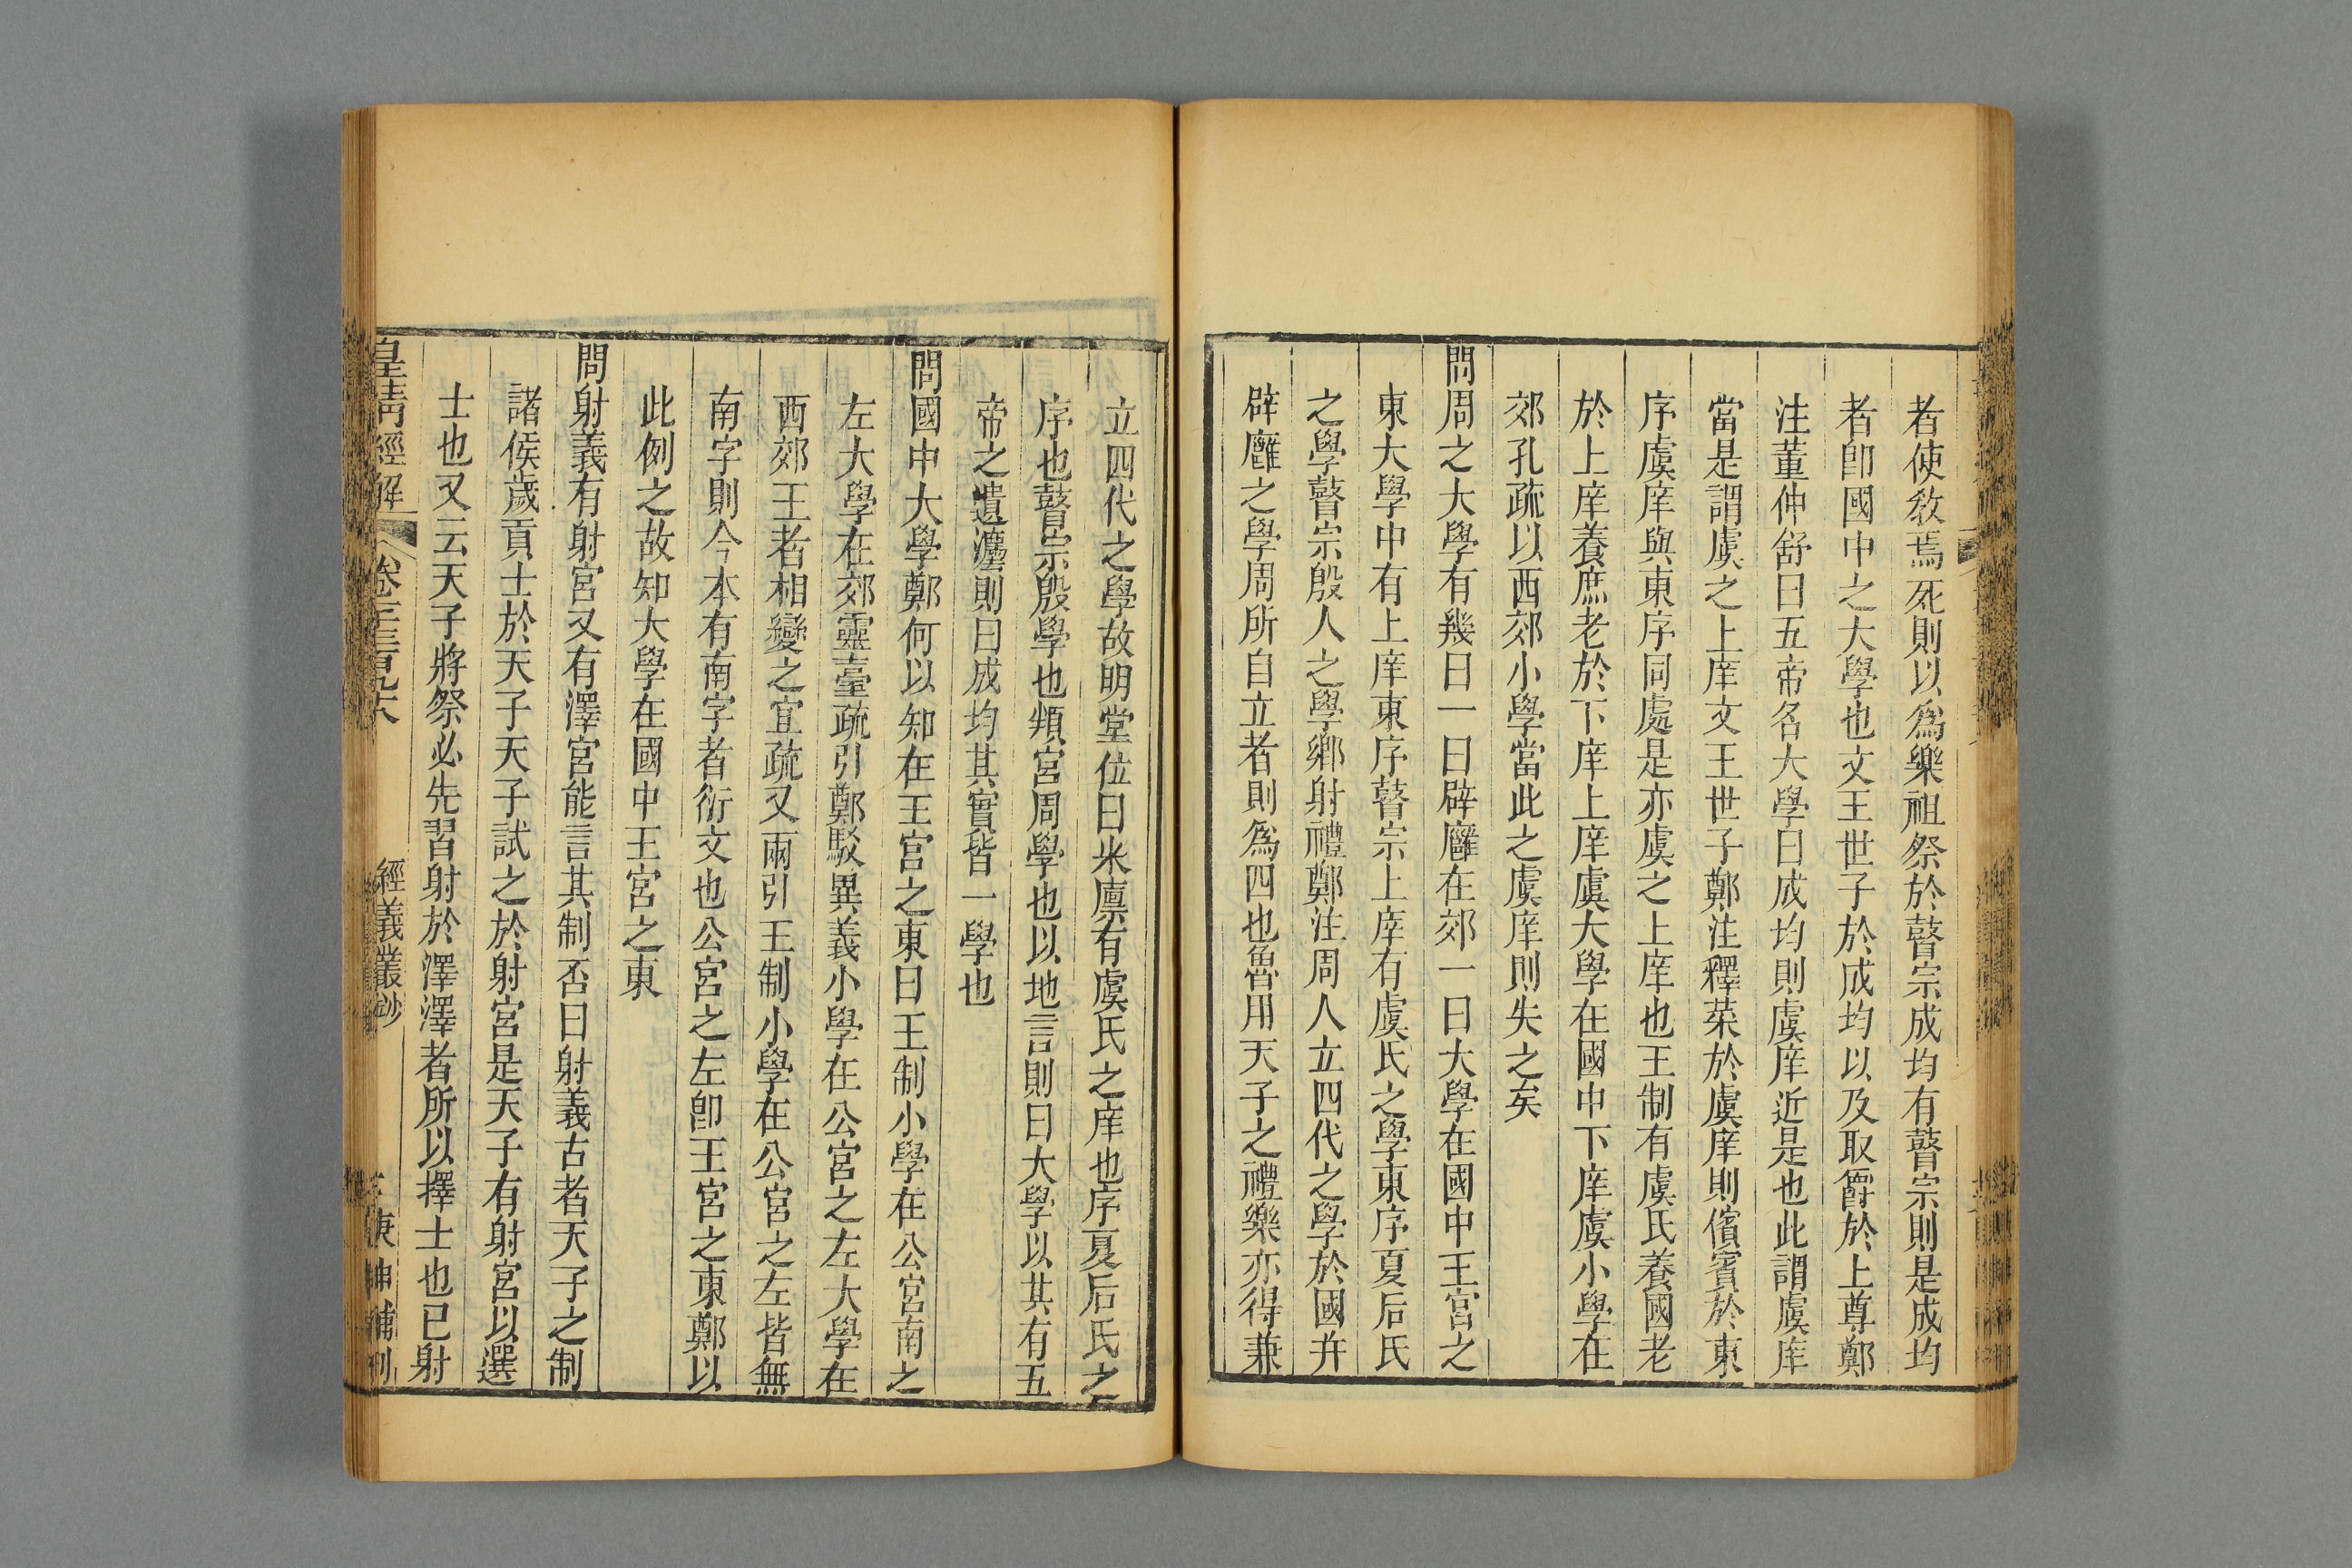 者使敎焉死則以爲樂祖祭於瞽宗成均有瞽宗則是成均
者卽國中之大學也文王世子於成均以及取爵於上尊鄭
注董仲舒曰五帝名大學曰成均則虞庠近是也此謂虞庠
當是謂虞之上庠文王世子鄭注釋菜於虞庠則儐賓於東
序虞庠與東序同處是亦虞之上庠也王制有虞氏養國老
於上庠養庶老於下庠上庠虞大學在國中下庠虞小學在
郊孔疏以西郊小學當此之虞庠則失之矣
問周之大學有幾曰一曰辟廱在郊一曰大學在國中王宮之
東大學中有上庠東序瞽宗上庠有虞氏之學東序夏后氏
之學瞽宗殷人之學鄉射禮鄭注周人立四代之學於國幷
辟廱之學周所自立者則爲四也魯用天子之禮樂亦得兼
立四代之學故明堂位曰米廩有虞氏之庠也序夏后氏之
序也瞽宗殷學也頖宮周學也以地言則曰大學以其有五
帝之遺灋則曰成均其實皆一學也
問國中大學鄭何以知在王宮之東曰王制小學在公宮南之
左大學在郊靈臺疏引鄭駁異義小學在公宮之左大學在
西郊王者相變之宜疏又兩引王制小學在公宮之左皆無
南字則今本有南字者衍文也公宮之左卽王宮之東鄭以
此例之故知大學在國中王宮之東
問射義有射宮又有澤宮能言其制否曰射義古者天子之制
諸侯歲貢士於天子天子試之於射宮是天子有射宮以選
士也又云天子將祭必先習射於澤澤者所以擇士也已射
皇淸經解 卷 經義叢鈔 庚申補刊